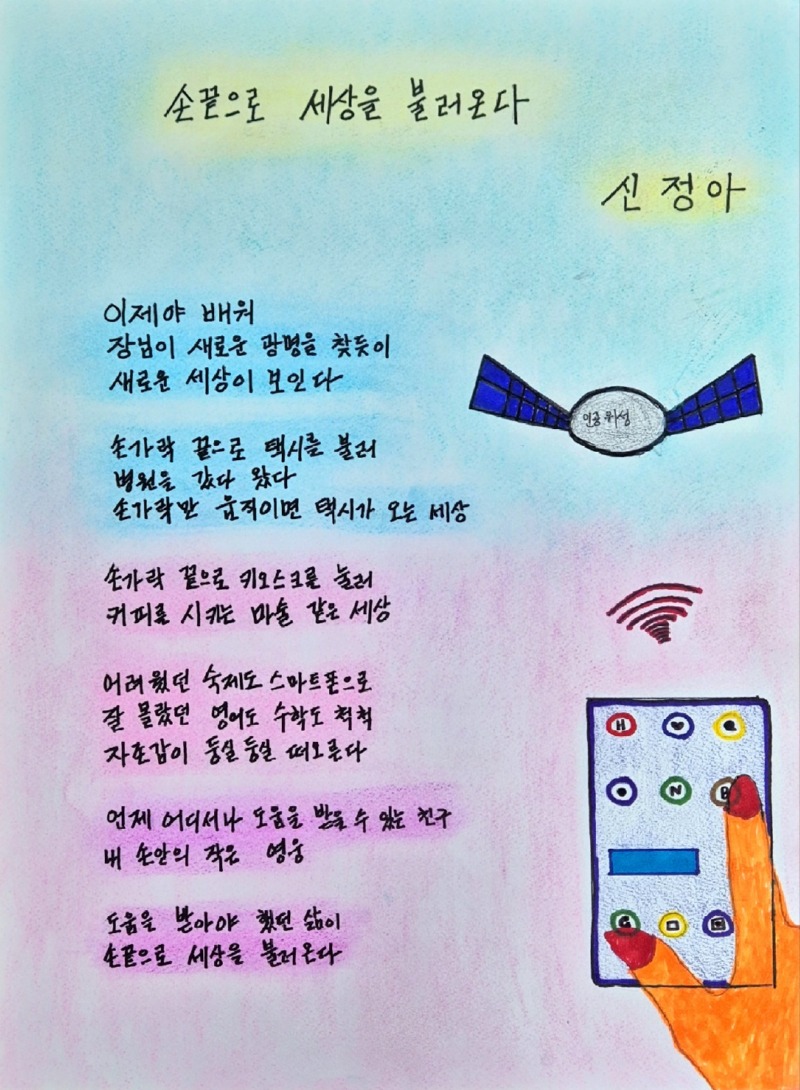 손끝으로 세상을 불러온다
신정아
이제야 배워
장님이 새로운 광명을 찾듯이
새로운 세상이 보인다
손가락 끝으로 택시를 불러
병원을 갔다 왔다
손가락만 움직이면 택시가 오는 세상
손가락 끝으로 키오스크를 눌러
커피를 시키는 마술 같은 세상
어려웠던 숙제도 스마트폰으로
잘 몰랐던 영어도 수학도 척척
자존감이 둥실둥실 떠오른다
언제 어디서나 도움을 받을 수 있는 친구
내 손안의 작은 영웅
도움을 받아야 했던 삶이
손끝으로 세상을 불러온다
인공위성
H
N
B
G